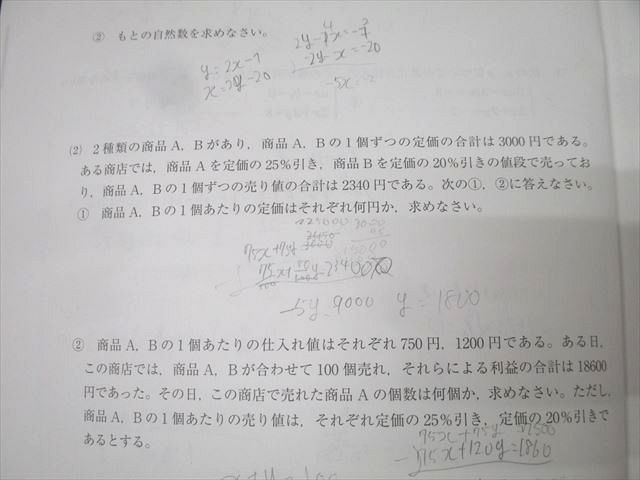 ② もとの自然数を求めなさい。
y=2x-7
x=2y-20
-2y-x=-20
-5x=-2
(2) 2種類の商品A，Bがあり，商品A，Bの1個ずつの定価の合計は3000円である。
ある商店では，商品Aを定価の25%引き，商品Bを定価の20%引きの値段で売ってお
り，商品A，Bの1個ずつの売り値の合計は2340円である。次の①，②に答えなさい。
① 商品A，Bの1個あたりの定価はそれぞれ何円か，求めなさい。
225000 3000
75x+75y
-5y-9000 y=1800
② 商品A，Bの1個あたりの仕入れ値はそれぞれ750円，1200円である。ある日，
この商店では，商品A，Bが合わせて100個売れ，それらによる利益の合計は18600
円であった。その日，この商店で売れた商品Aの個数は何個か，求めなさい。ただし，
商品A，Bの1個あたりの売り値は，それぞれ定価の25%引き，定価の20%引きで
あるとする。
75x+75y 7500
75x+120y=1860
x+y=100